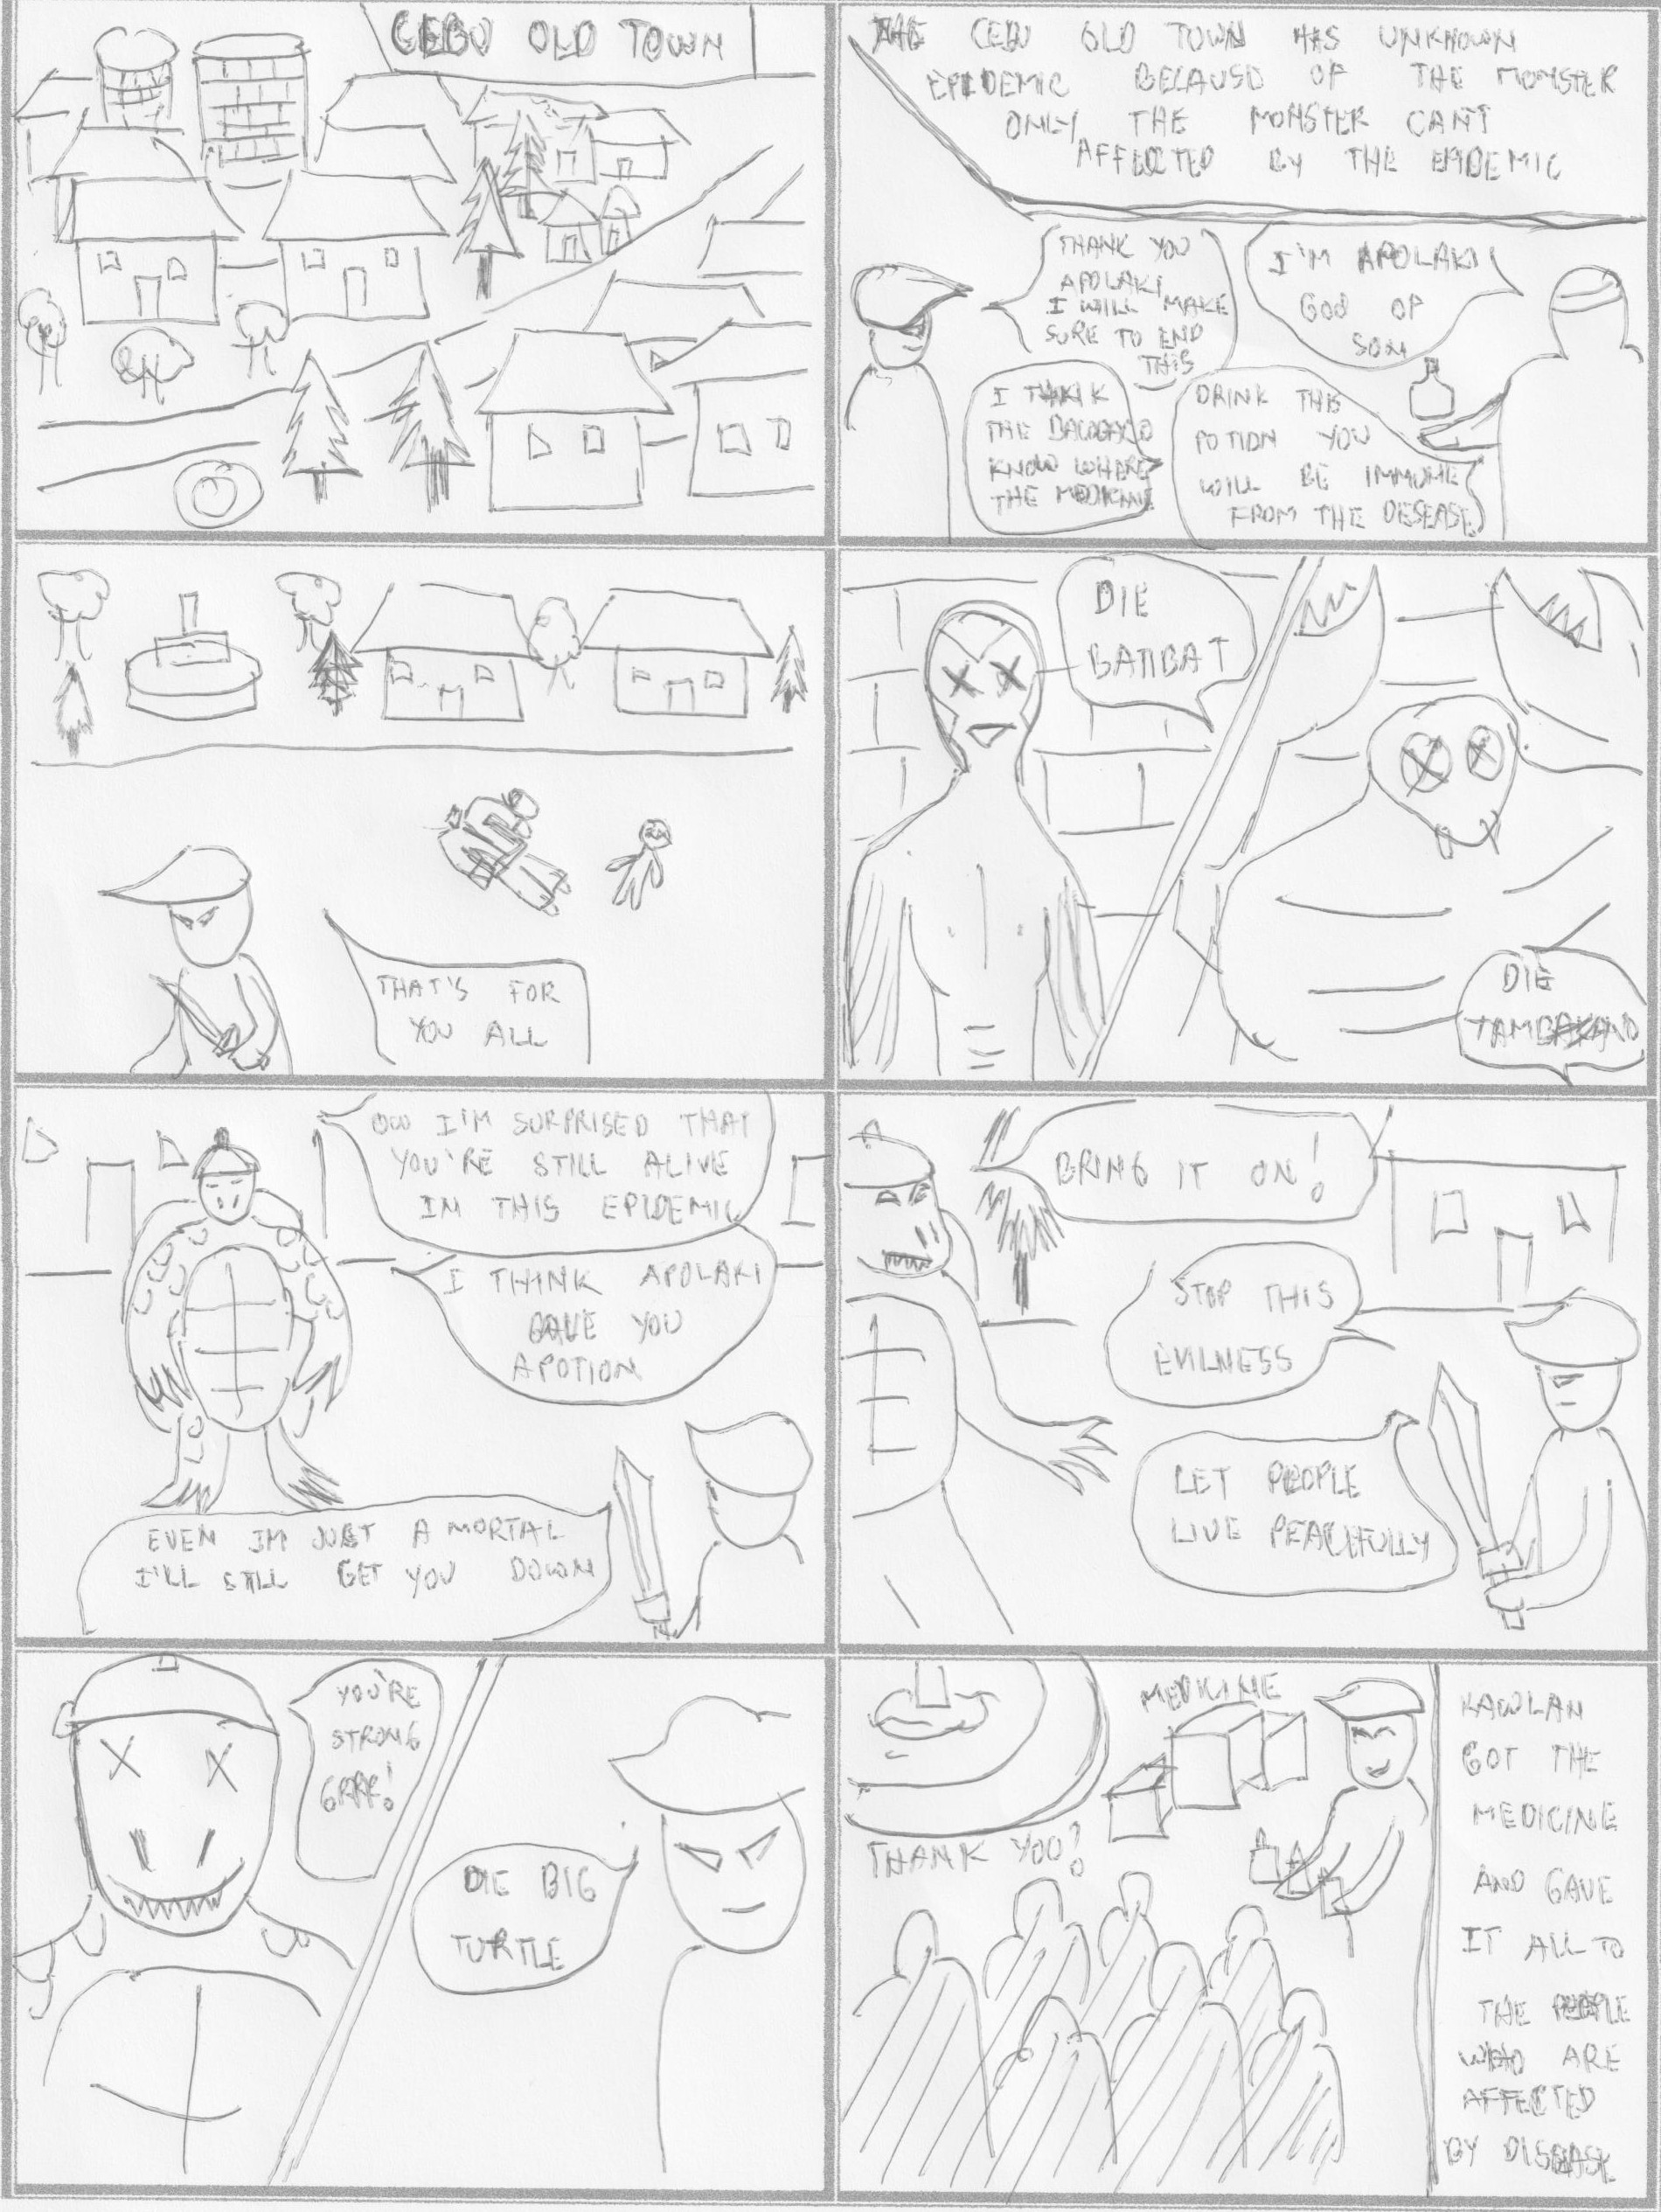 CEBU OLD TOWN
THE CEBU OLD TOWN HAS UNKNOWN
EPIDEMIC BECAUSE OF THE MONSTER
ONLY THE MONSTER CANT
AFFECTED BY THE EPIDEMIC
I'M APOLAKI
GOD OF
SON
THANK YOU
APOLAKI
I WILL MAKE
SURE TO END
THIS
DRINK THIS
POTION YOU
WILL BE IMMUNE
FROM THE DESEASE
I THINK
THE
KNOW WHERE
THE MEDICINE
THAT'S FOR
YOU ALL
DIE
BATIBAT
DIE
OOO I'M SURPRISED THAT
YOU'RE STILL ALIVE
IN THIS EPIDEMIC
I THINK APOLAKI
GAVE YOU
A POTION
EVEN IM JUST A MORTAL
I'LL STILL GET YOU DOWN
BRING IT ON!
STOP THIS
EVILNESS
LET PEOPLE
LIVE PEACEFULLY
YOU'RE
STRONG
GRRR!
DIE BIG
TURTLE
MEDICINE
THANK YOU!
KAWLAN
GOT THE
MEDICINE
AND GAVE
IT ALL TO
THE PEOPLE
WHO ARE
AFFECTED
BY DISEASE